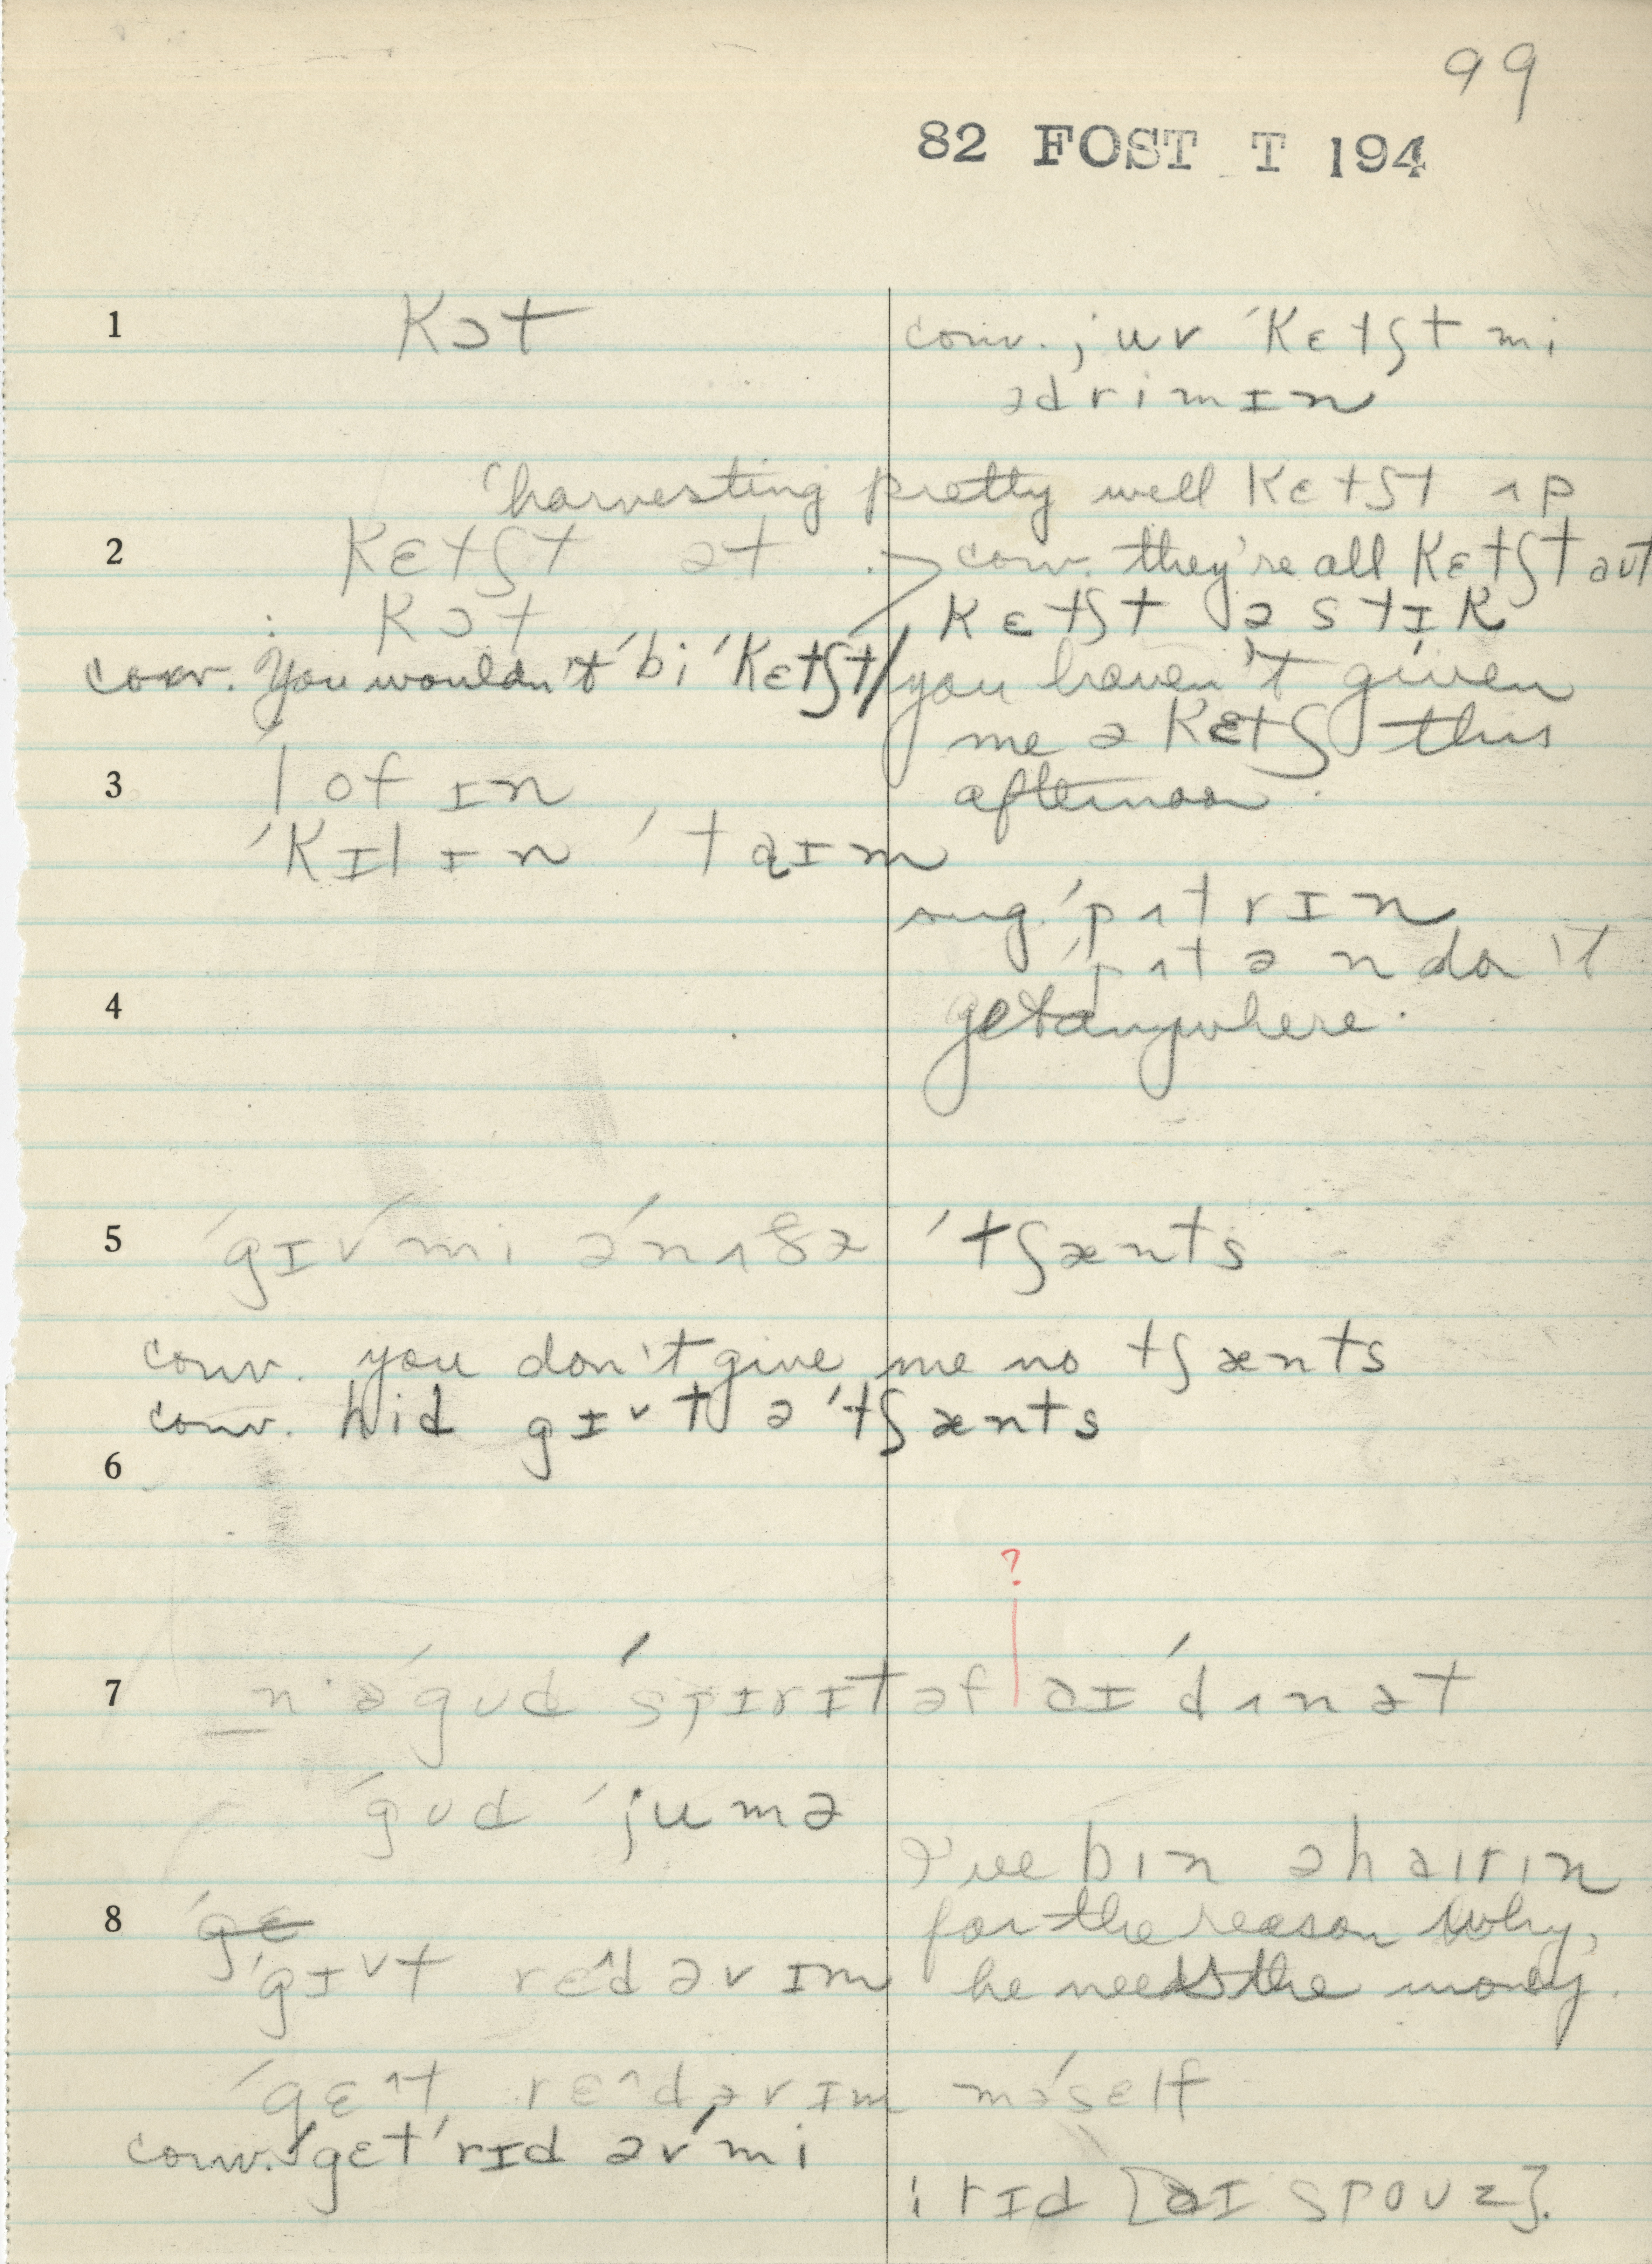 99
82 FOST T 194
1 kɔt
conv. juv ˈkɛtʃt mi
ədrimɪn
ˈharvesting pretty well kɛtʃt ʌp
2 kɛtʃt ət
conv. they're all kɛtʃt aut
: kɔt
kɛtʃt ə stɪk
conv. You wouldn't ˈbi ˈkɛtʃt/
you haven't given
me a kɛtʃ this
afternoon.
3 ˈlofɪn
ˈkɪlɪn ˈtaɪm
sug. ˈpʌtrɪn
ˈpʌtən don't
get anywhere.
4
5 ˈgɪv mi əˈnʌðə ˈtʃænts
conv. you don't give me no tʃænts
conv. hid gɪvt ə ˈtʃænts
6
?
7 n ə ˈgud ˈspɪrɪt əf aɪ ˈdʌn ət
ˈgud ˈjumə
I've bin ə haɪrɪn
for the reason why,
he needs the money.
8 ˈgɛ
ˈgɪvt rɛˆd əv ɪm
ˈgɛˆt rɛˆd əv ɪm məˈsɛlf
conv. ˈgɛt ˈrɪd əv ˈmi
: rɪd [aɪ spouz].